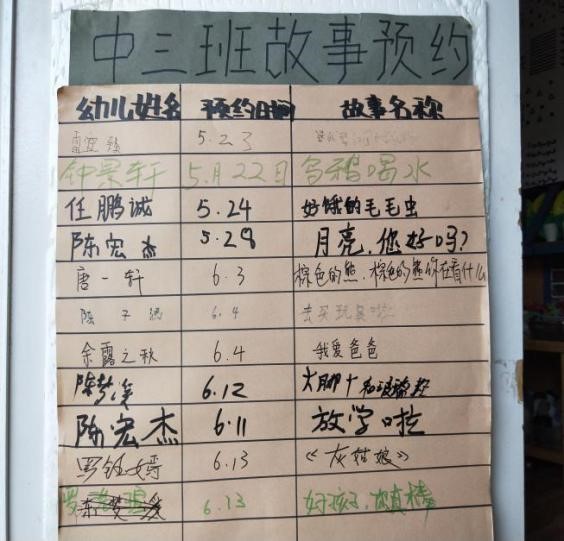 中三班故事预约
幼儿姓名 预约日期 故事名称
5.23
钟景轩 5月22日 乌鸦喝水
任鹏诚 5.24 好饿的毛毛虫
陈宏杰 5.29 月亮,您好吗?
唐一轩 6.3 棕色的熊、棕色的熊你在看什么
陈子 6.4 去买玩具啦
余露之秋 6.4 我爱爸爸
陈梦溪 6.12 大脚丫
陈宏杰 6.11 放学啦
罗钰嫣 6.13 《灰姑娘》
6.13 好孩子,真棒